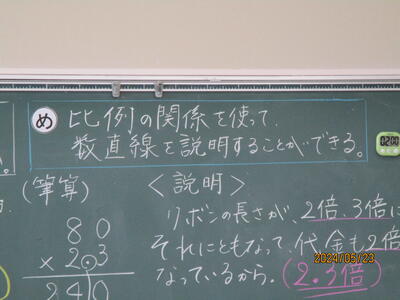 め 比例の関係を使って、
数直線を説明することができる。
02:00
(筆算)
80
×2.3
240
<説明>
リボンの長さが、2倍、3倍に
それにともなって、代金も2倍
なっているから。(2.3倍)
2024/05/23